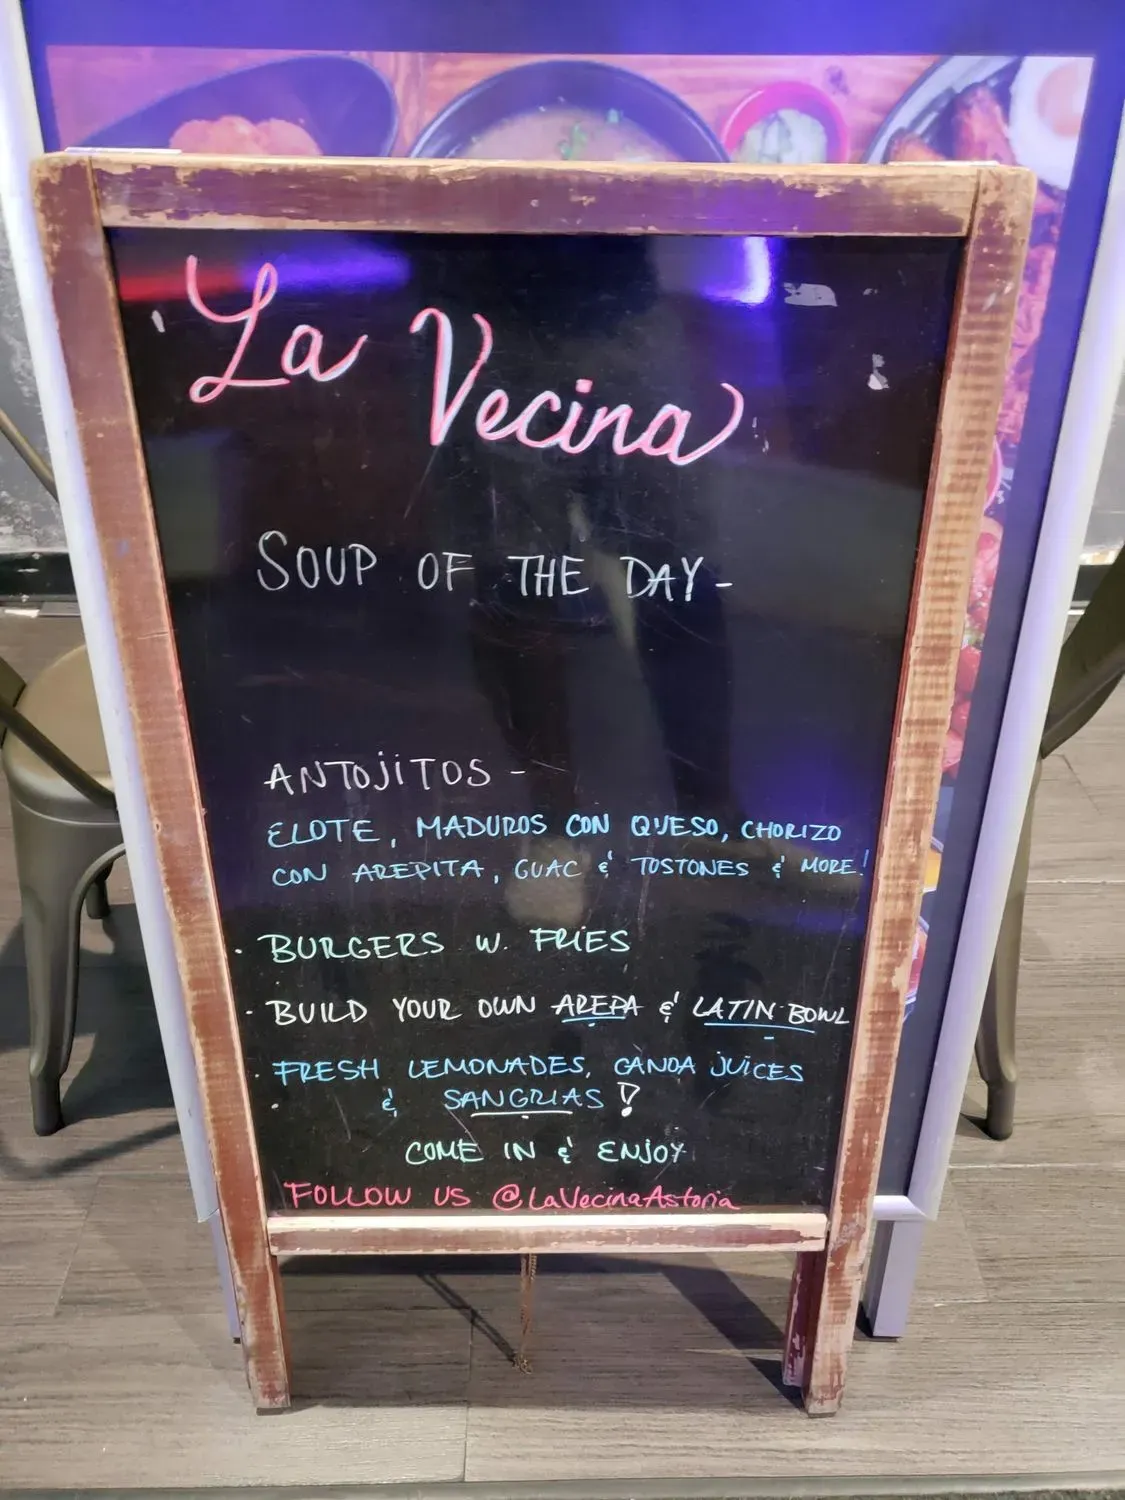 La Vecina
SOUP OF THE DAY -
ANTOJITOS -
ELOTE, MADUROS CON QUESO, CHORIZO
CON AREPITA, GUAC & TOSTONES & MORE!
· BURGERS W. FRIES
· BUILD YOUR OWN AREPA & LATIN BOWL
· FRESH LEMONADES, CANOA JUICES
· & SANGRIAS!
COME IN & ENJOY
FOLLOW US @LaVecinaAstoria